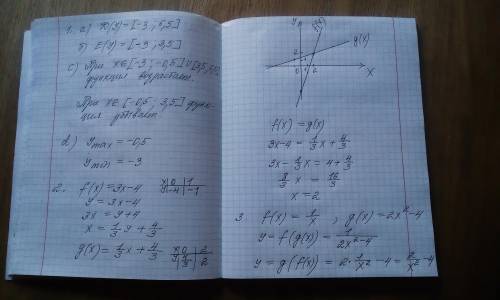 1. а) D(y) = [-3 ; 5,5]
б) E(y) = [-3 ; 3,5]
с) При x∈[-3 ; -0,5]∪[3,5; 5,5]
функция возрастает.
При x∈[-0,5 ; 3,5] функ-
ция убывает.
d) ymax = -0,5
ymin = -3
2. f(x) = 3x-4
x|0|1
y|-4|-1
y = 3x-4
3x = y+4
x = 1/3 y + 4/3
g(x) = 1/3 x + 4/3
x|0|2
y|4/3|2
y
g(x)
2
0 2 x
f(x) = g(x)
3x-4 = 1/3 x + 4/3
3x - 1/3 x = 4 + 4/3
8/3 x = 16/3
x = 2
3. f(x) = 1/x ; g(x) = 2x²-4
y = f(g(x)) = 1/(2x²-4)
y = g(f(x)) = 2·1/x² -4 = 2/x² -4